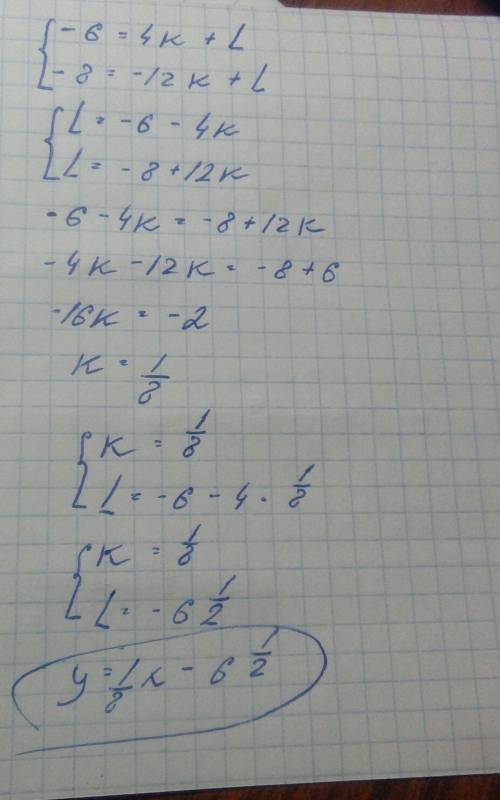 {-6 = 4к + L
-8 = -12к + L
{L = -6 - 4к
L = -8 + 12к
-6 - 4к = -8 + 12к
-4к - 12к = -8 + 6
-16к = -2
к = 1/8
{к = 1/8
L = -6 - 4 · 1/8
{к = 1/8
L = -6 1/2
y = 1/8 x - 6 1/2